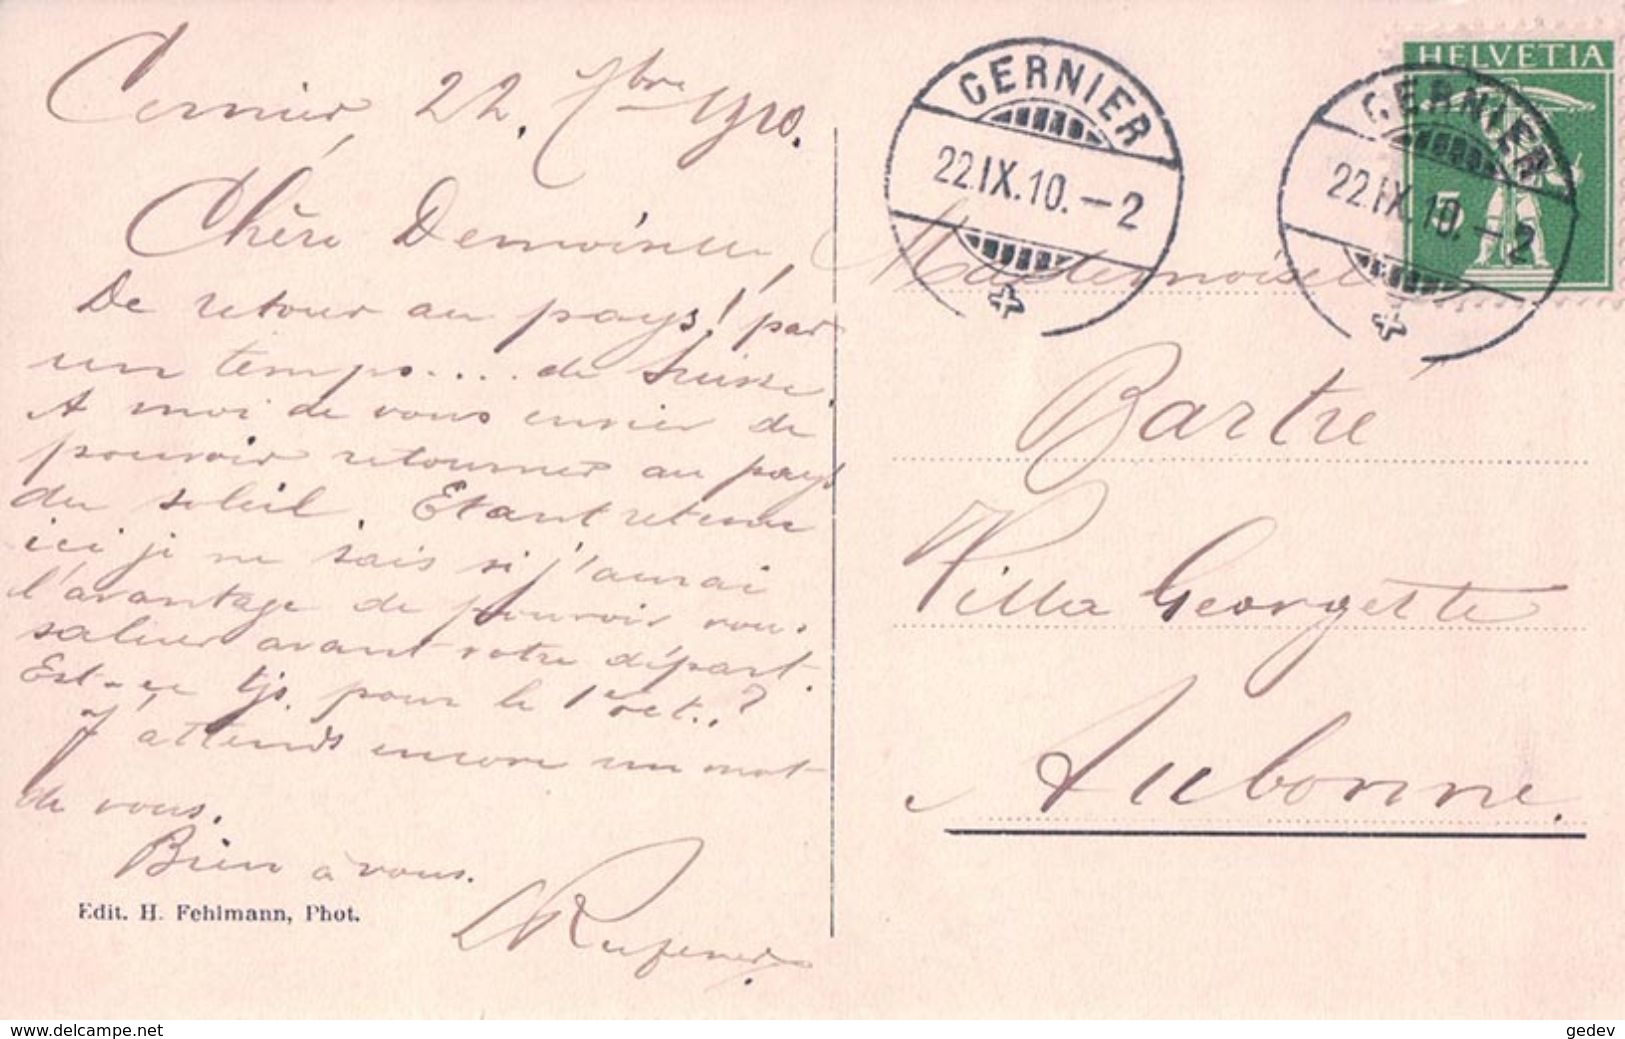 Cernier, 22. 7bre 1910.
Chère Demoiselle,
De retour au pays! par
un temps.... de Suisse.
A moi de vous envier de
pouvoir retourner au pays
du soleil. Etant retenu
ici je ne sais si j'aurai
l'avantage de pouvoir vous
saluer avant votre départ.
Est-ce tjs. pour le 1er oct..?
J'attends encore un mot
de vous.
Bien à vous.
Edit. H. Fehlmann, Phot.
CERNIER
22.IX.10.–2
HELVETIA
5
CERNIER
22.IX.10.–2
Mademoiselle
Bartre
Villa Georgette
Aubonne.
www.delcampe.net
gedev